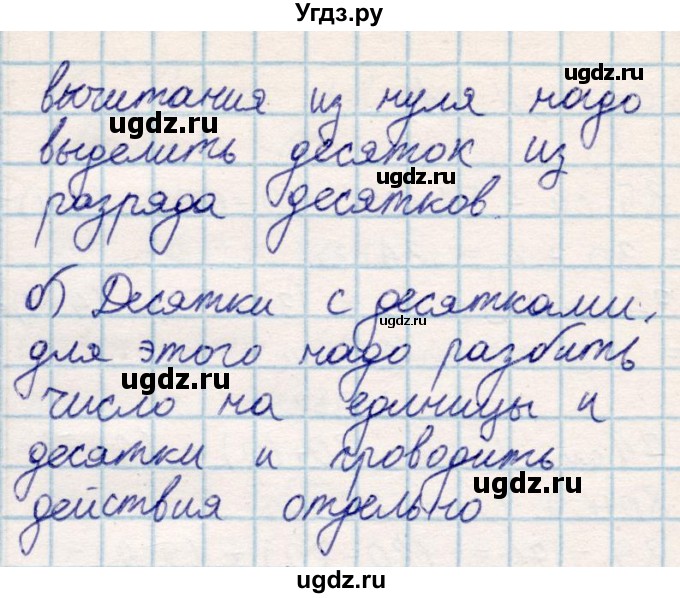 Угдз.ру
ugdz.ru
вычитания из нуля надо
ugdz.ru
выделить десяток из
ugdz.ru
разряда десятков
б) Десятки с десятками,
ugdz.ru
для этого надо разбить
ugdz.ru
число на единицы и
десятки и проводить
ugdz.ru
действия отдельно
ugdz.ru